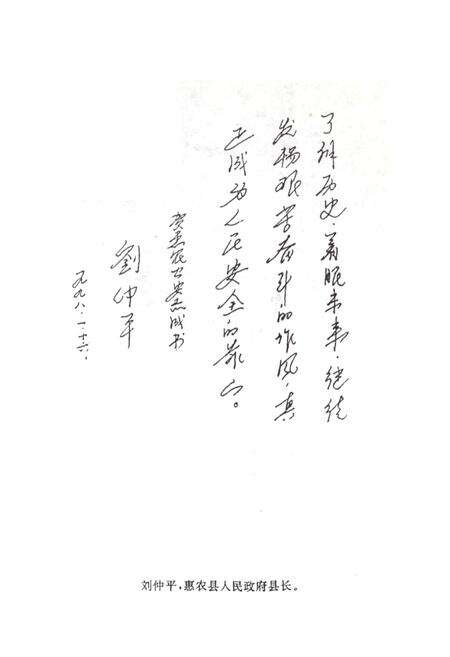 了解历史,着眼未来,继续
发扬艰苦奋斗的作风,真
正成为人民安全的靠山。
贺惠农公安志成书
劉仲平
一九九八.一.十六.
刘仲平,惠农县人民政府县长。